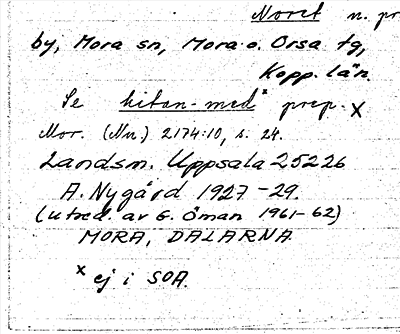 Noret n. pr
by, Mora sn, Mora o. Orsa tg,
Kopp. län.
Se hitan-med prep. x
Mor. (Nn.) 2174:10, s. 24.
Landsm. Uppsala 25226
A. Nygård 1927-29.
(utred. av E. Öman 1961-62)
MORA, DALARNA.
x ej i SOA.